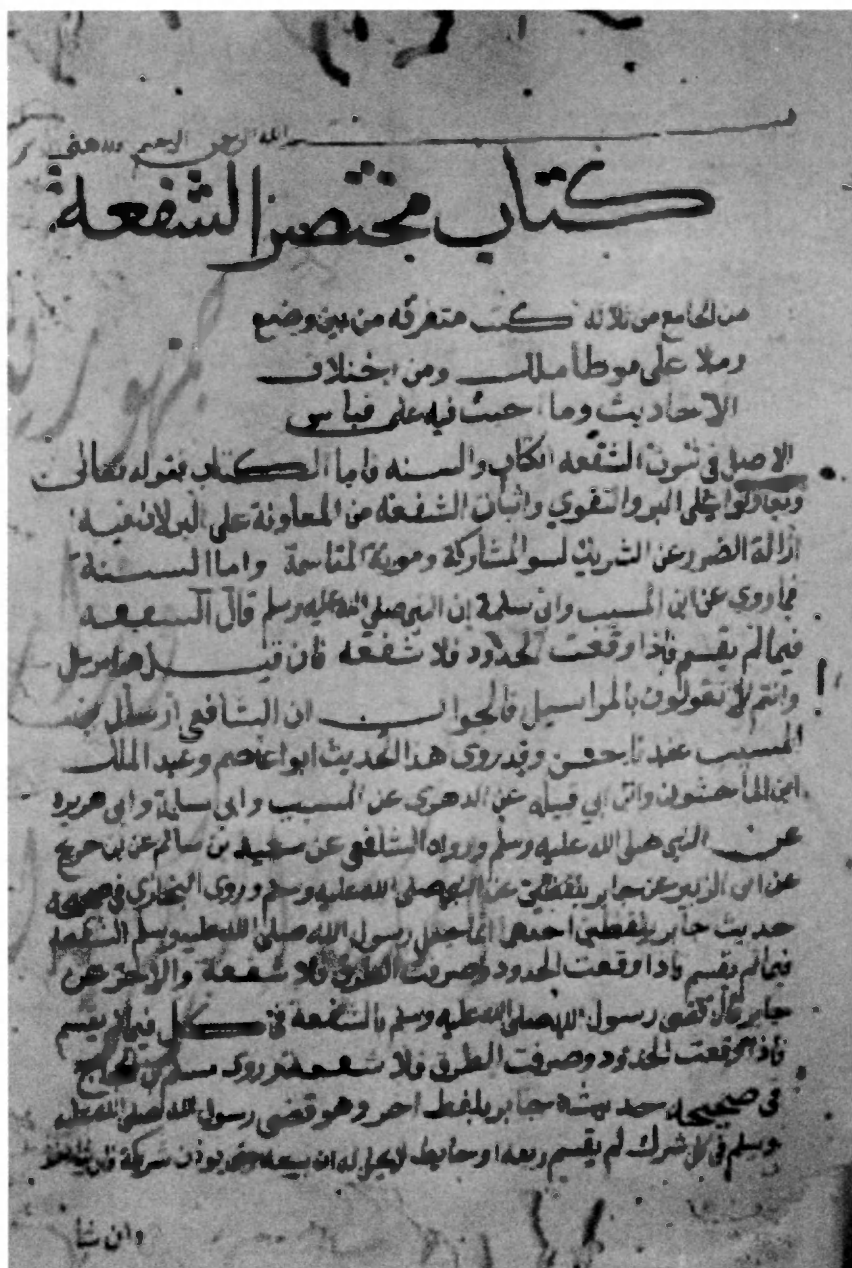 بسم الله الرحمن الرحيم
كتاب مختصر الشفعة
من الجامع من ثلاثة كتب متفرقة من بين وضع
وملا على موطأ ملك ومن اختلاف
الاحاديث وما احبت فيه على قياس
الاصل في ثبوت الشفعة الكتاب والسنه فاما الكتاب فقوله تعالى
وتعاونوا على البر والتقوي واثبات الشفعة من المعاونة على البر لان فيه
ازالة الضرر عن الشريك لسو المشاركة ومونة المقاسمة واما السنة
فما روي عن ابن المسيب وابي سلمة ان النبي صلى الله عليه وسلم قال الشفعه
فيما لم يقسم فاذا وقعت الحدود فلا شفعه فان قيل هذا مرسل
وانتم لا تقولون بالمراسيل فالجواب ان الشافعي ارسال ابن
المسيب عندنا حسن وقد روى هذا الحديث ابوا عاصم وعبد الملك
ابن الماجشون وابن ابي قتيله عن الزهرى عن المسيب وابى سلمة وابى هريرة
عن النبي صلى الله عليه وسلم ورواه الشافعى عن سعيد بن سالم عن بن جريج
عن ابى الزبير عن جابر بلفظين عن النبي صلى الله عليه وسلم وروى البخارى في صحيحه
حديث جابر بلفظين احدهما انما جعل رسول الله صلى الله عليه وسلم الشفعة
فيما لم يقسم فاذا وقعت الحدود وصرفت الطرق فلا شفعة والاخر عن
جابر قال قضى رسول الله صلى الله عليه وسلم بالشفعة في كل فيما لم يقسم
فاذا وقعت الحدود وصرفت الطرق فلا شفعة وروى مسلم بن الحجاج
في صحيحه حديث جابر بلفظ اخر وهو قضى رسول الله صلى الله عليه
وسلم في كل شرك لم يقسم ربعه او حايط لا يحل له ان يبيعه حتى يوذن شريكه فان شا اخذ
وان شا